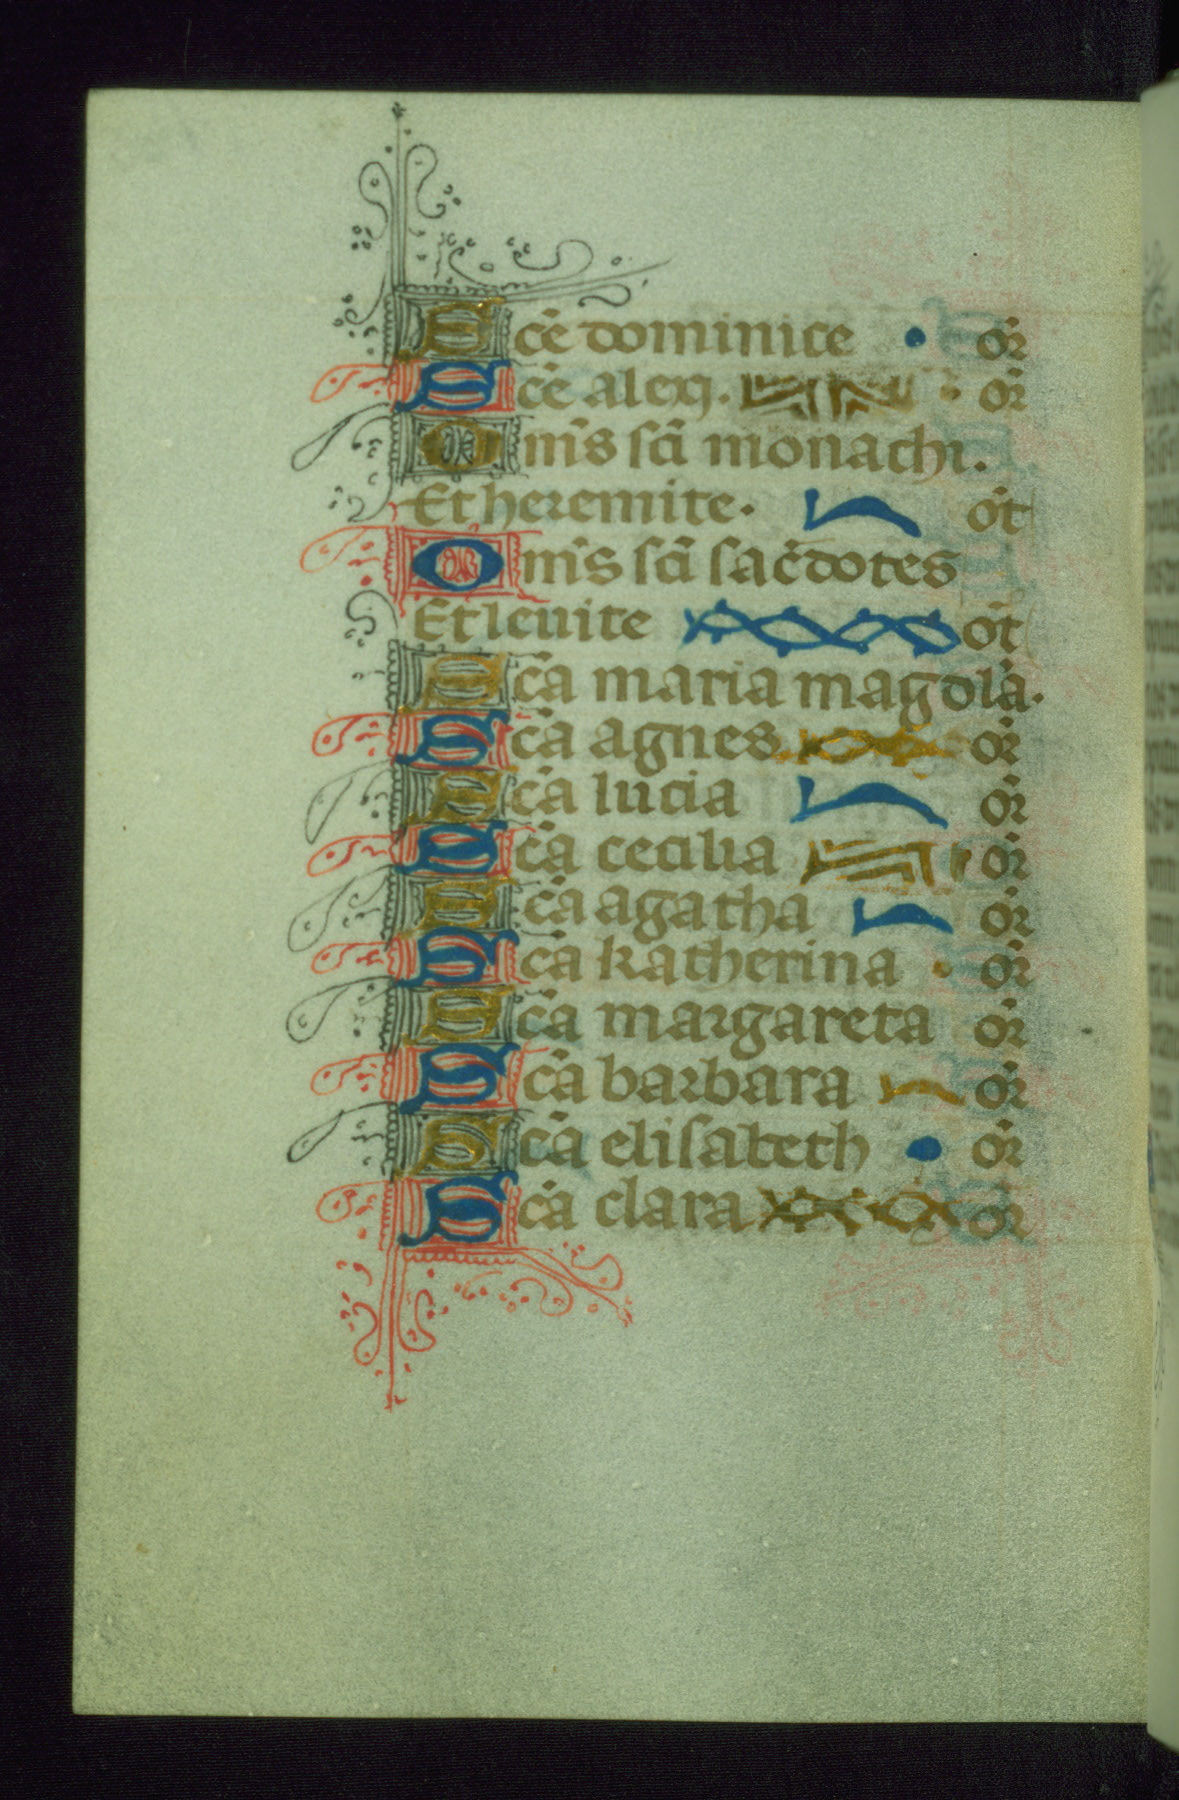 Scē dominice or̄
Scē alexi. or̄
Om̄s sc̄i monachi.
Et heremite. ōt
Om̄s sc̄i sac̄dotes
Et leuite ōt
Sc̄a maria magdl̄a.
Sc̄a agnes or̄
Sc̄a lucia or̄
Sc̄a cecilia or̄
Sc̄a agatha or̄
Sc̄a katherina or̄
Sc̄a margareta or̄
Sc̄a barbara or̄
Sc̄a elisabeth or̄
Sc̄a clara or̄